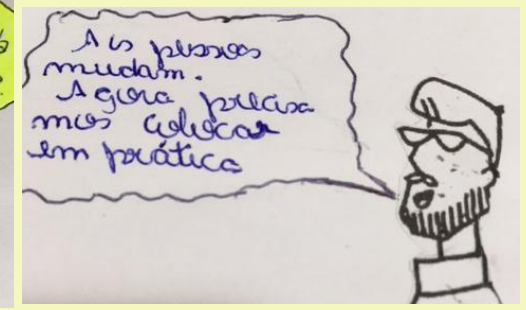 As pessoas
mudam.
Agora precisa
mos colocar
em prática